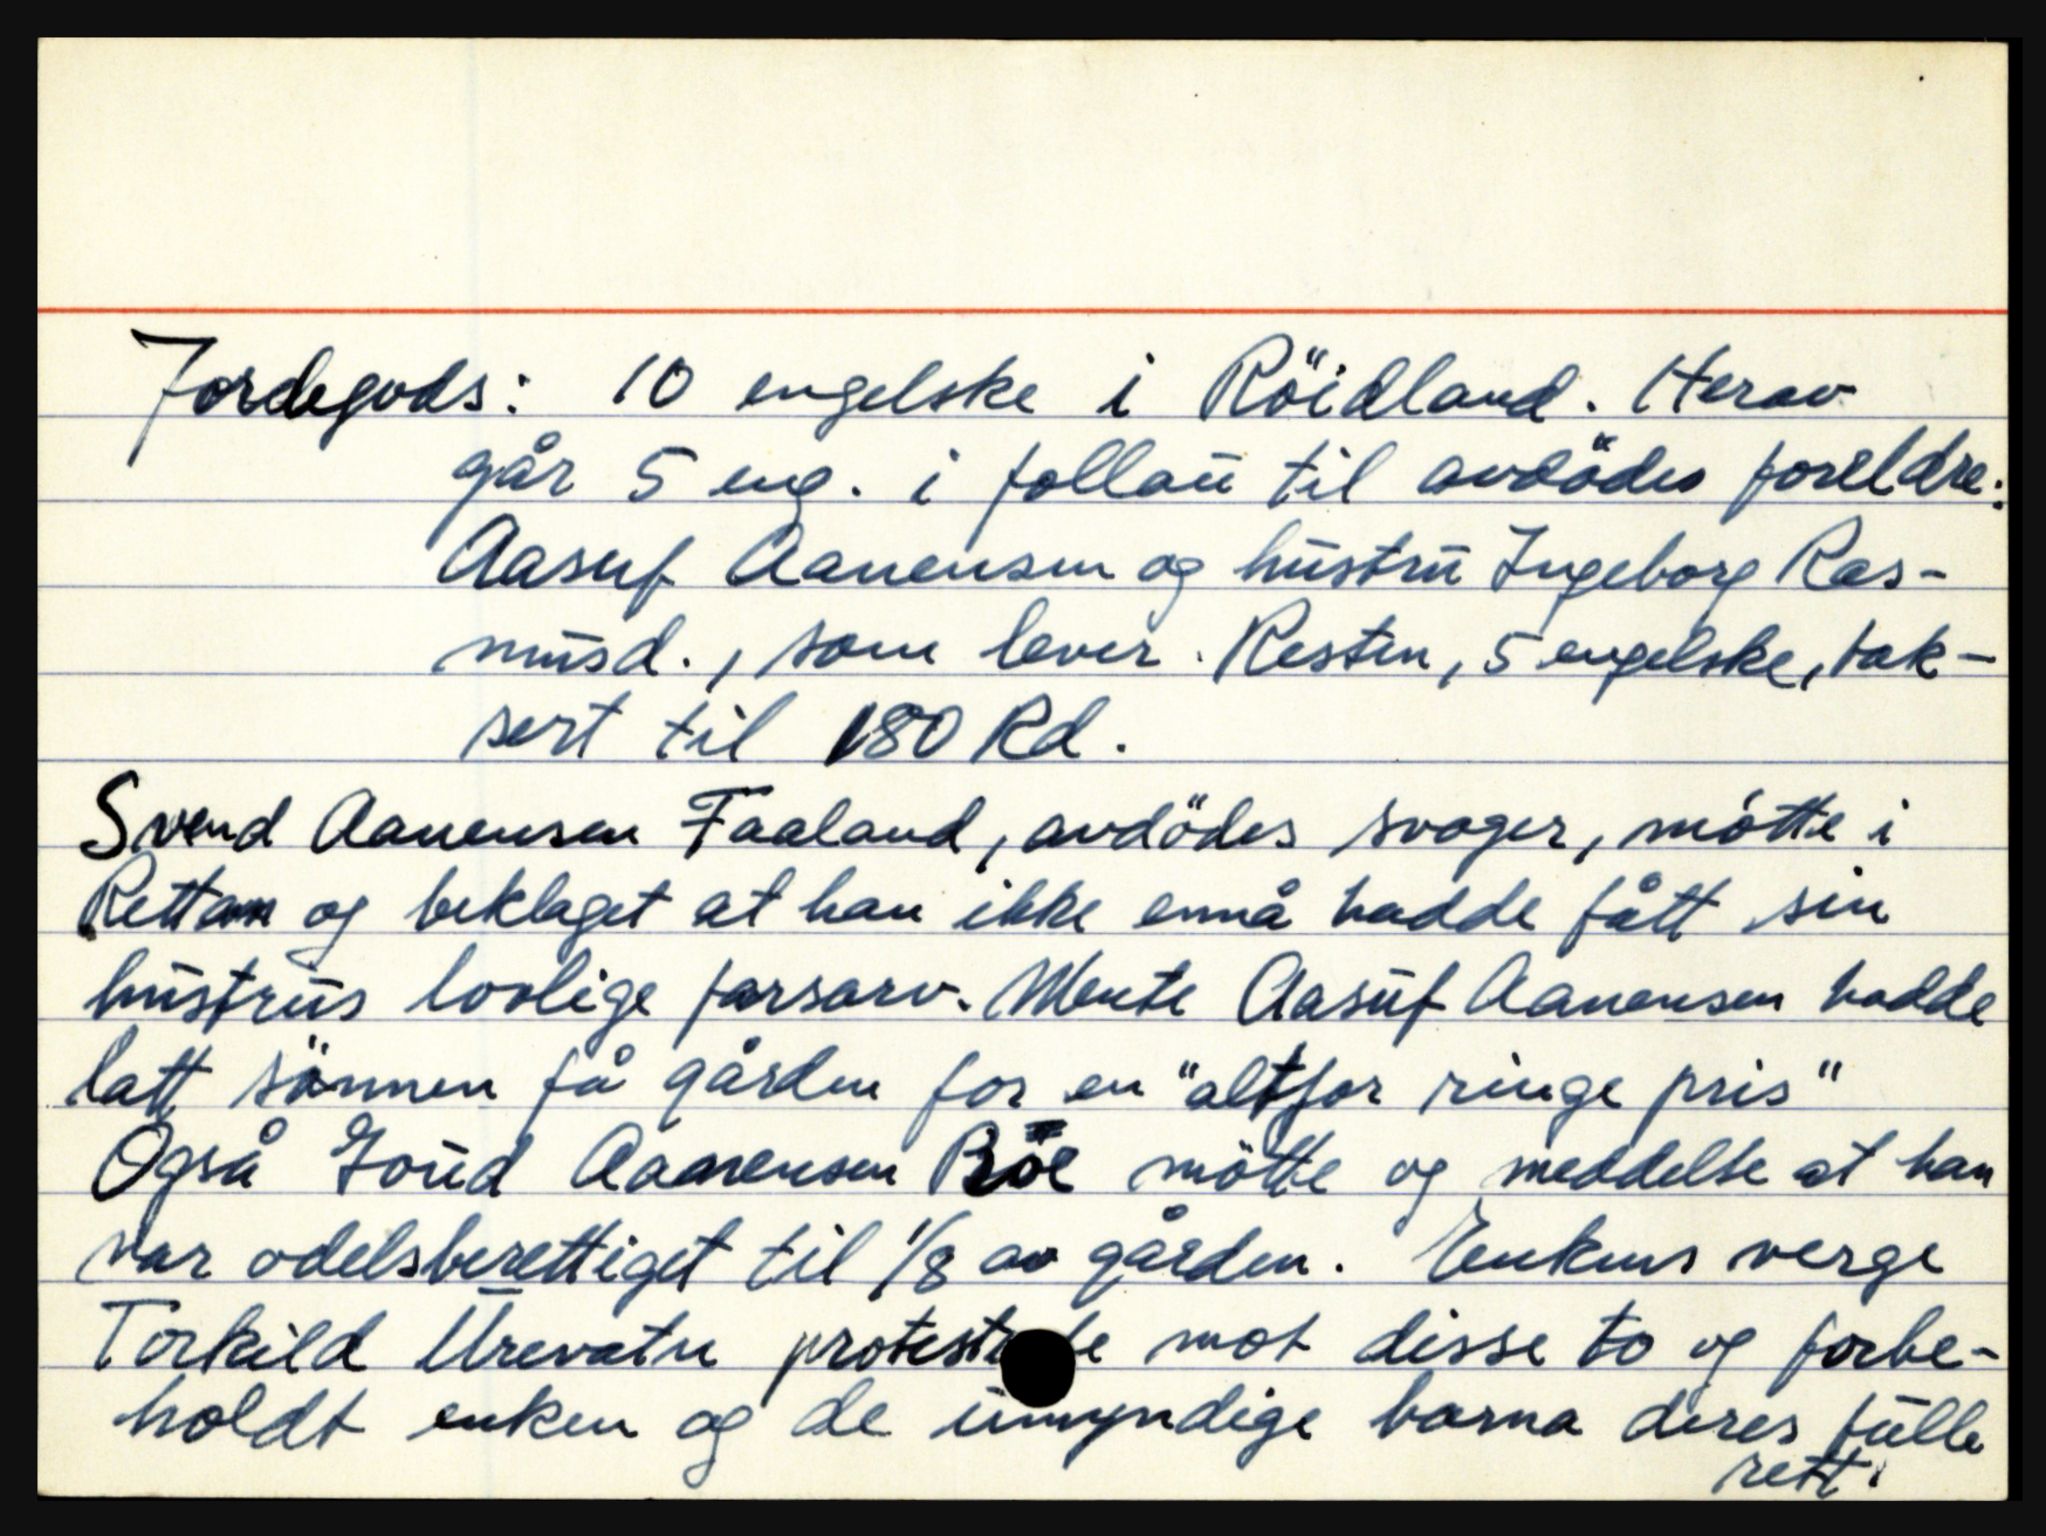 Jordegods: 10 engelske i Röidland. Herav
går 5 eng. i follaŭ til avdödes foreldre:
Aasuf Aanensen og hŭstrŭ Ingeborg Ras-
mŭsd., som lever. Resten, 5 engelske, tak-
sert til 180 Rd.
Svend Aanensen Faaland, avdödes svoger, mötte i
Retten og beklaget at han ikke ennå hadde fått sin
hŭstrŭs lovlige farsarv. Mente Aasŭf Aanensen hadde
latt sönnen få gården for en "altfor ringe pris"
Også Joŭd Aanensen Böe mötte og meddelte at han
var odelsberettiget til 1/8 av gården. Enkens verge
Torkild Ŭrevatn protesterte mot disse to og forbe-
holdt enken og de ŭmyndige barna deres fŭlle
rett.